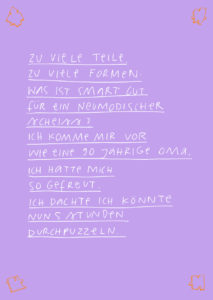 ZU VIELE TEILE
ZU VIELE FORMEN.
WAS IST SMART CUT
FÜR EIN NEUMODISCHER
SCHEISS?
ICH KOMME MIR VOR
WIE EINE 90 JÄHRIGE OMA.
ICH HATTE MICH
SO GEFREUT.
ICH DACHTE ICH KÖNNTE
NUN STUNDEN
DURCHPUZZELN